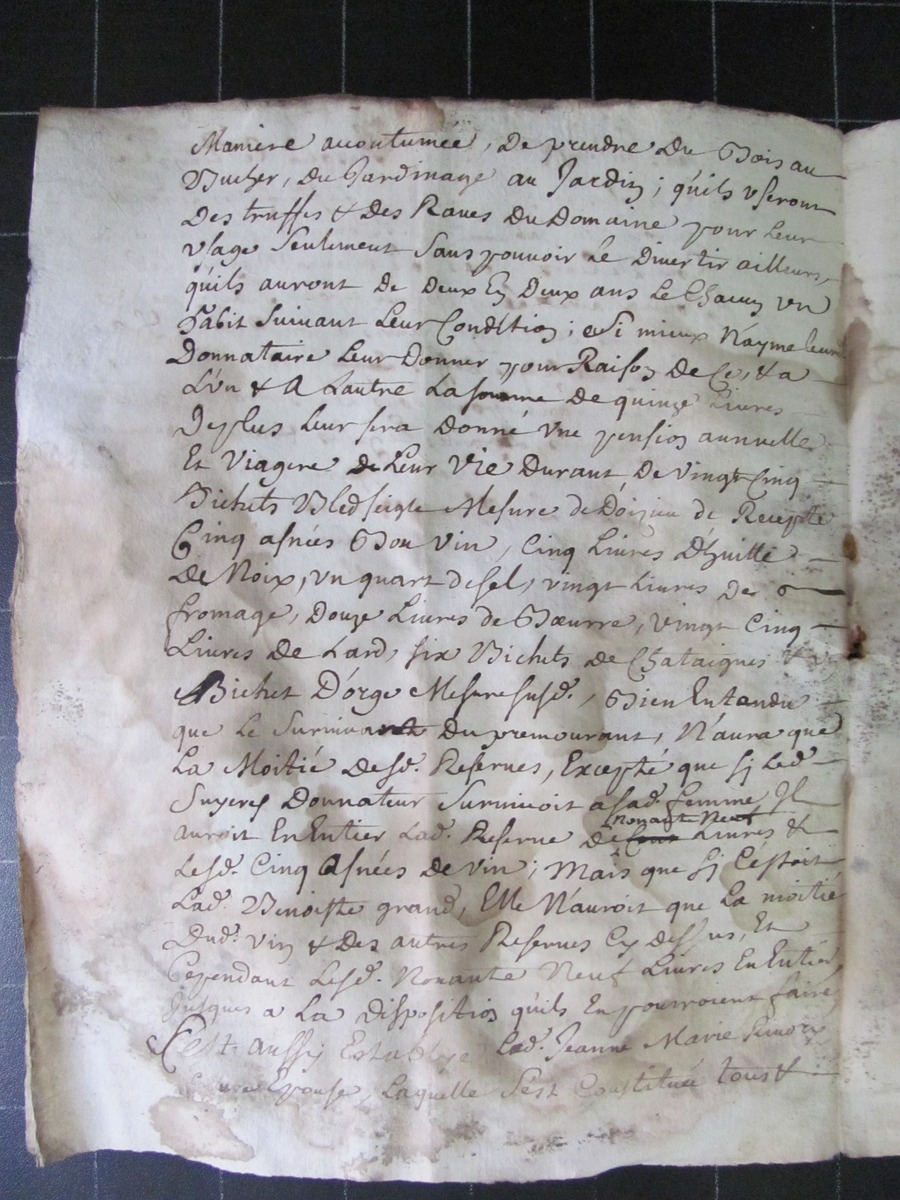 Maniere accoutumée, De prendre Du Bois au
Bucher, Du Jardinage au Jardin; quils useront
Des truffes & Des Raves Du Domaine pour Leur
usage Seulement Sans pouvoir Le Divertir ailleurs,
quils auront De Deux En Deux ans Le Chacun un
habit Suivant Leur Condition; Si mieux N'ayme leur
Donnataire Leur Donner pour Raison De Ce, & a
L'un & A Lautre La somme De quinze Livres
De plus Leur sera Donné une pension annuelle
Et Viagere de Leur Vie Durant, De Vingt Cinq
Bichets Bled seigle Mesure de Doizieu de Recepte
Cinq asnées Bon Vin, Cinq Livres D'huille
De Noix, un quart de sel, vingt Livres De
fromage, Douze Livres de Bœurre, Vingt Cinq
Livres De Lard, six Bichets de Chataignes &
Bichet D'orge Mesure susd., Bien Entendu
que Le Survivant Du premourant, N'aura que
La Moitié Desd. Reserves, Excepté que sy Led.
Donnateur Survivoit a sad. femme Il
auroit En Entier Lad. Reserve De Nonante Neuf Livres &
Lesd. Cinq Asnées de vin; Mais que sy C'estoit
Lad. Benoiste grand, Elle N'auroit que La moitié
Dud. Vin & Des autres Reserves Cy Dessus, Et
Cependant Lesd. Nonante Neuf Livres En Entier
Jusques a La Disposition quils En pourroient faire
C'est aussy Establye Lad. Jeanne Marie
Epouse, Laquelle S'est Constituée tous &